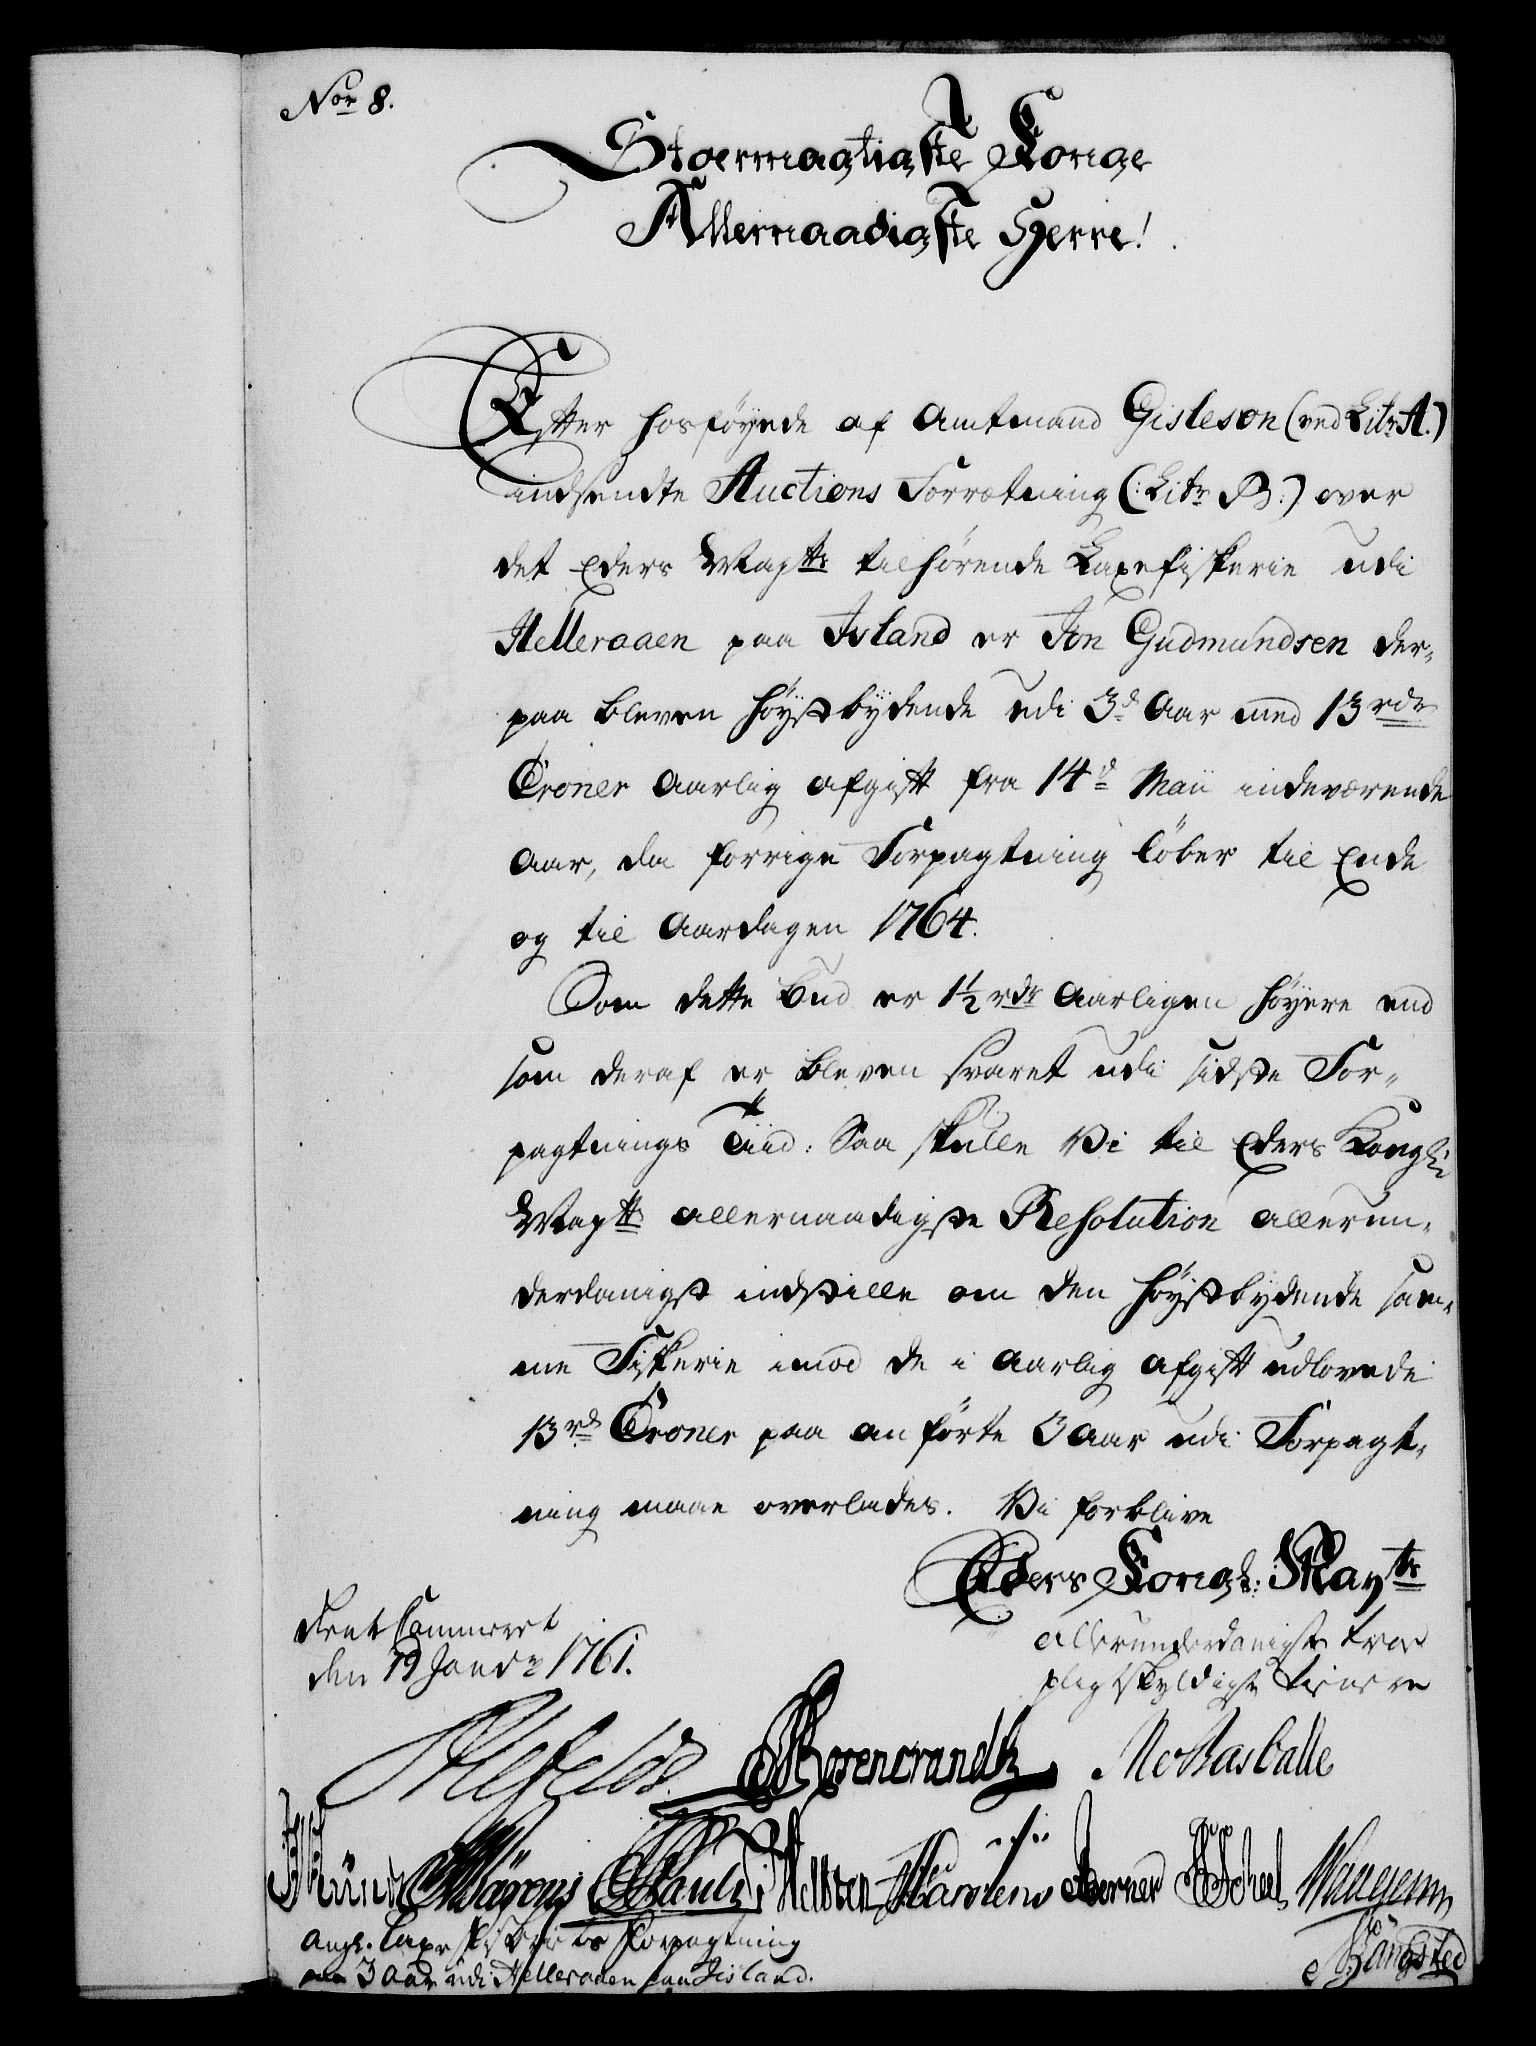 Nor 8.
Stoermægtigste Konge
Allernaadigste Herre!
Efter hosføyede af Amtmand Gisleson (ved Litr A.)
indsendte Auctions Forretning (: Litr B:) over
det Eders Maytts tilhørende Laxefiskerie udi
Helleraaen paa Island er Jon Gudmundsen der-
paa bleven høystbydende udi 3de Aar med 13 rdr
Croner aarlig afgift fra 14de Maii indeværende
Aar, da forrige Forpagtning løber til Ende
og til Aardagen 1764.
Som dette bud er 1½ rdr Aarligen høyere end
som deraf er bleven svaret udi sidste For-
pagtnings Tiid: Saa skulle Vi til Eders Kongli
Maytts allernaadigste Resolution allerun-
derdanigst indstille om den høystbydende sam-
me Fiskerie imod de i aarlig afgift udlovede
13 rd Croner paa anførte 3 Aar udi Forpagt-
ning maae overlades. Vi forblive
Eders Kongl: Mayts
allerunderdanigste troe
pligtskyldigste tienere
Rent Cammeret
den 19 Janr 1761.
Ahlefeldt Rosencrandtz
Pauli Holsten Berner Scheel
Bangsted
angl. Laxe fiskeriets forpagtning
paa 3 Aar udi Helleraaen paa Iisland.